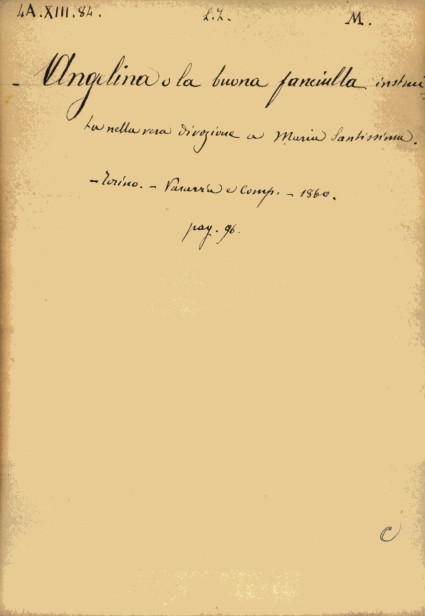 4A.XIII.84. L.Z. M.
- Angelina o la buona fanciulla instrui
ta nella vera divozione a Maria Santissima.
- Torino. - e Comp. - 1860.
pag. 96.
C